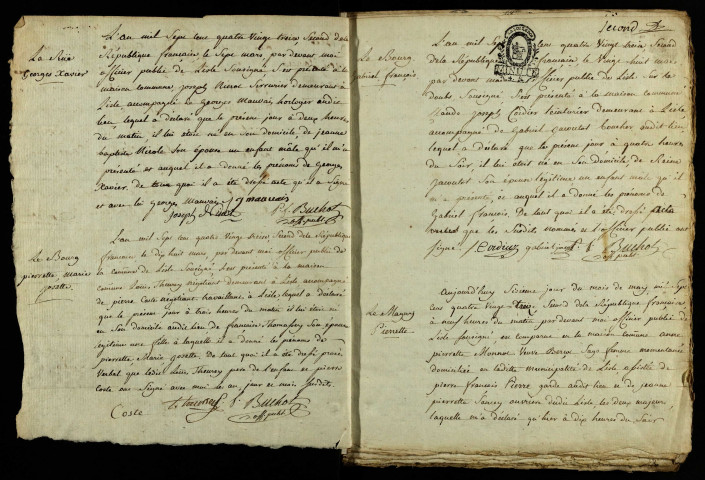 La Rue
Georges Xavier
L'an mil Sept cent quatre Vingt trois, Second de la
République française le Sept mars, par devant moi
officier public de Lisle Soussigné S'est présenté à la
maison commune joseph Serrurier demeurant à
Lisle, accompagné de Georges Mauvais horloger audit
lieu, lequel a déclaré que le présent jour à deux heures
du matin il lui etoit né en Son domicile, de jeanne
baptiste Nicole Son épouse un enfant mâle qu'il m'a
présenté et auquel il a donné les prénoms de Georges
Xavier. de tout quoi il a été dressé acte qu'il a Signé
et avec lui Georges Mauvais
joseph
Buchot
off. publ.
Le Bourg
pierrette, Marie
Josette
L'an mil Sept cent quatre Vingt trois, Second de la République
française, le dix huit mars, par devant moi officier public de
la commune de Lisle Soussigné S'est présenté à la maison
commune Louis Theurey argilier demeurant à Lisle accompagné
de pierre Coste argilier travaillant à Lisle, lequel a déclaré
que le présent jour à trois heures du matin il lui etoit né
en Son domicile audit lieu de françoise Son épouse
légitime une fille à laquelle il a donné les prénoms de
pierrette Marie Josette. de tout quoi il a été dressé procès
Verbal que ledit Louis Theurey père de l'enfant et pierre
Coste ont Signé avec moi les an, jour et mois Susdits.
Coste
L. Theurey
Buchot
off. publ.
Second
Le Bourg
Gabriel françois
L'an mil Sept cent quatre Vingt trois Second
de la République française le Vingt huit mars
par devant moi officier public de Lisle sur le
doubs, Soussigné S'est présenté à la maison commune
joseph Cordier teinturier demeurant à Lisle
accompagné de Gabriel boucher audit lieu,
lequel a déclaré que le présent jour à quatre heures
du Soir, il lui etoit né en Son domicile, de
Son épouse légitime un enfant mâle qu'il
m'a présenté, et auquel il a donné les prénoms de
Gabriel françois, de tout quoi il a été dressé Acte
que les Susdits nommés et l'officier public ont
Signé
Buchot
off. publ.
Le Magny
Pierrette
Aujourd'huy Sixieme jour du mois de may mil Sept
cent quatre Vingt treize, Second de la République française
à neuf heures du matin par devant moi officier public de
Lisle Soussigné, est comparue en la maison commune anne
pierrette Monnot Veuve Sage femme
domiciliée en laditte municipalité de Lisle, assistée de
pierre françois Pierre garde audit lieu et de jeanne
pierrette ouvriere dudit Lisle les deux majeurs,
laquelle m'a déclaré qu'hier à dix heures du Soir